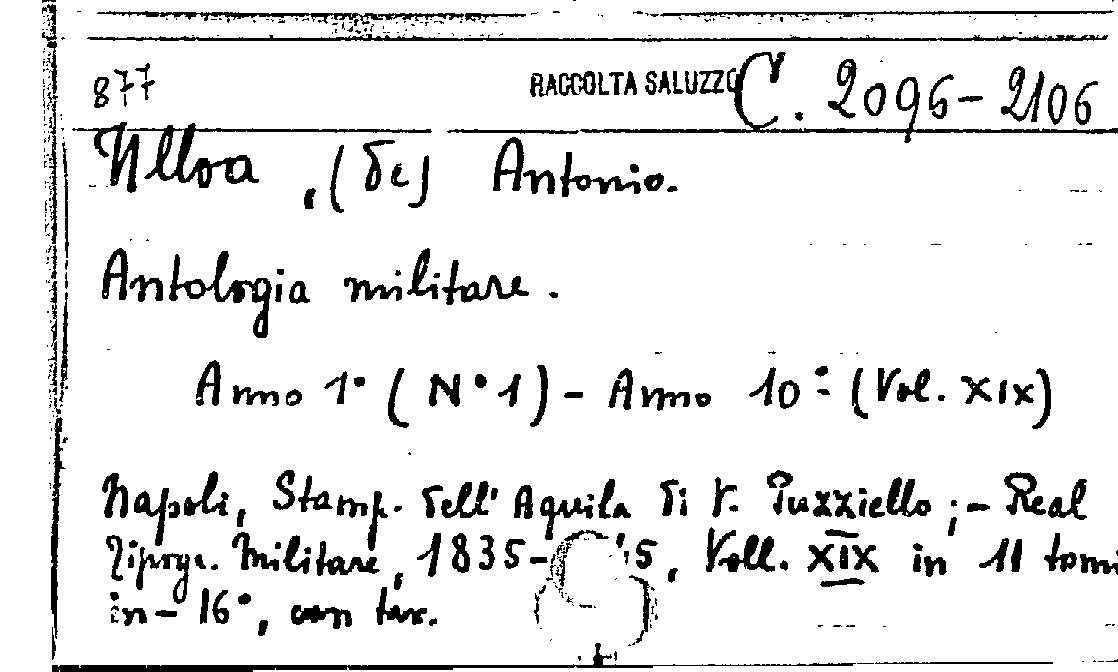 877 RACCOLTA SALUZZO C. 2096-2106
Ulloa, (De) Antonio.
Antologia militare.
Anno 1° (N° 1) - Anno 10° (Vol. XIX)
Napoli, Stamp. dell' Aquila di V. Puzziello; - Real
Tipogr. Militare, 1835- 5, Voll. XIX in 11 tomi
in-16°, con tav.